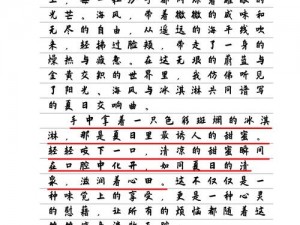 光芒。海风，带着微微的咸味和
无尽的自由，从遥远的海平线吹
来，轻拂过脸颊，带走了一身的
燥热与疲惫。在这无垠的蔚蓝与
金黄交织的世界里，我仿佛听见
了阳光、海风与冰淇淋共同谱写
的夏日交响曲。
手中拿着一只色彩斑斓的冰淇
淋，那是夏日里最诱人的甜蜜。
轻轻咬下一口，清凉的甜蜜瞬间
在口腔中化开，如同夏日的清
泉，滋润着心田。这不仅仅是一
种味觉上的享受，更是一种心灵
的慰藉，让所有的烦恼都随着这